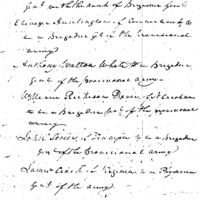 just with the rank of Brigadier Genl
Ebenezer Huntington, of Connecticut to
be a Brigadier Gl of the Provisional
army
Anthony Walton White to be a Brigadier
Genl of the Provisional army
William Richardson Davie, of
to be a Brigadier Genl of the provisional
army
John Sevier, of Tennessee to be a Brigadier
Genl of the Provisional army
James of Virginia to be
Genl of the army